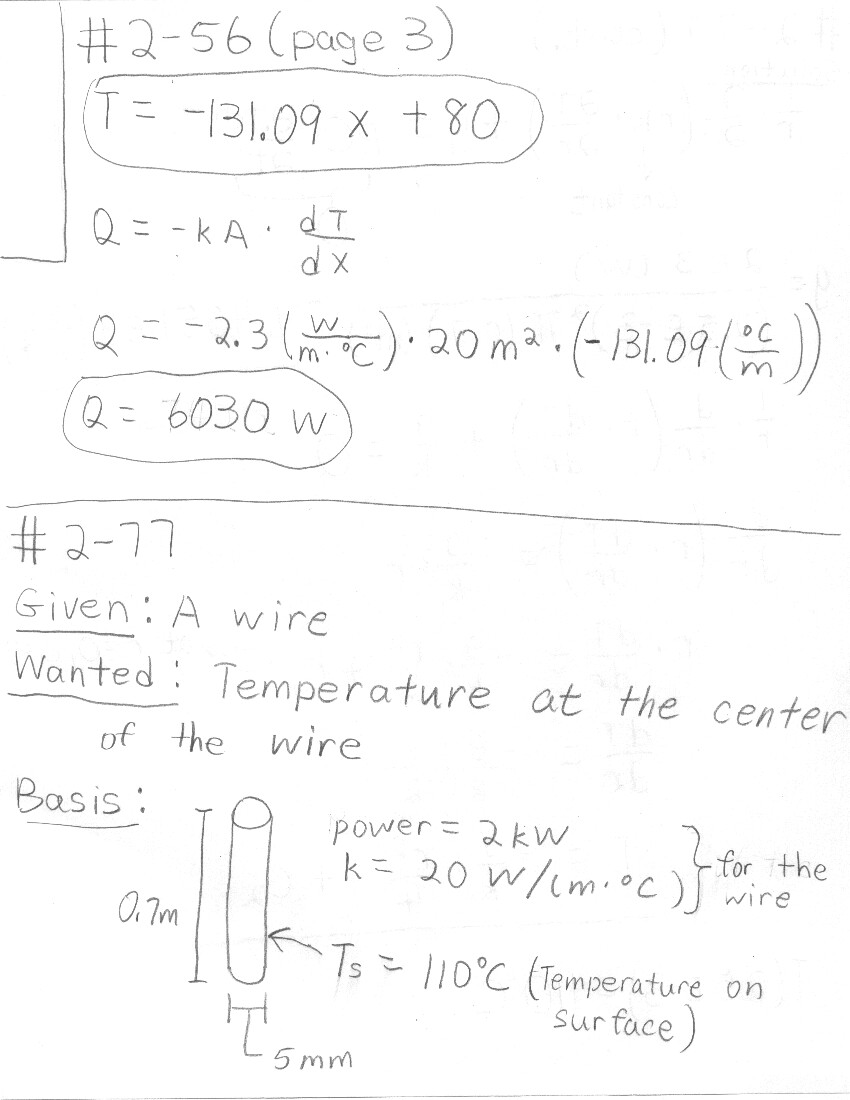 #2-56 (page 3)
T = -131.09 x + 80
Q = -kA · dT/dx
Q = -2.3 (W/m·°C) · 20 m² · (-131.09 (°C/m))
Q = 6030 W
#2-77
Given: A wire
Wanted: Temperature at the center
of the wire
Basis:
power = 2 kW
k = 20 W/(m·°C) } for the
wire
0.7m
Ts = 110°C (Temperature on
surface)
5 mm